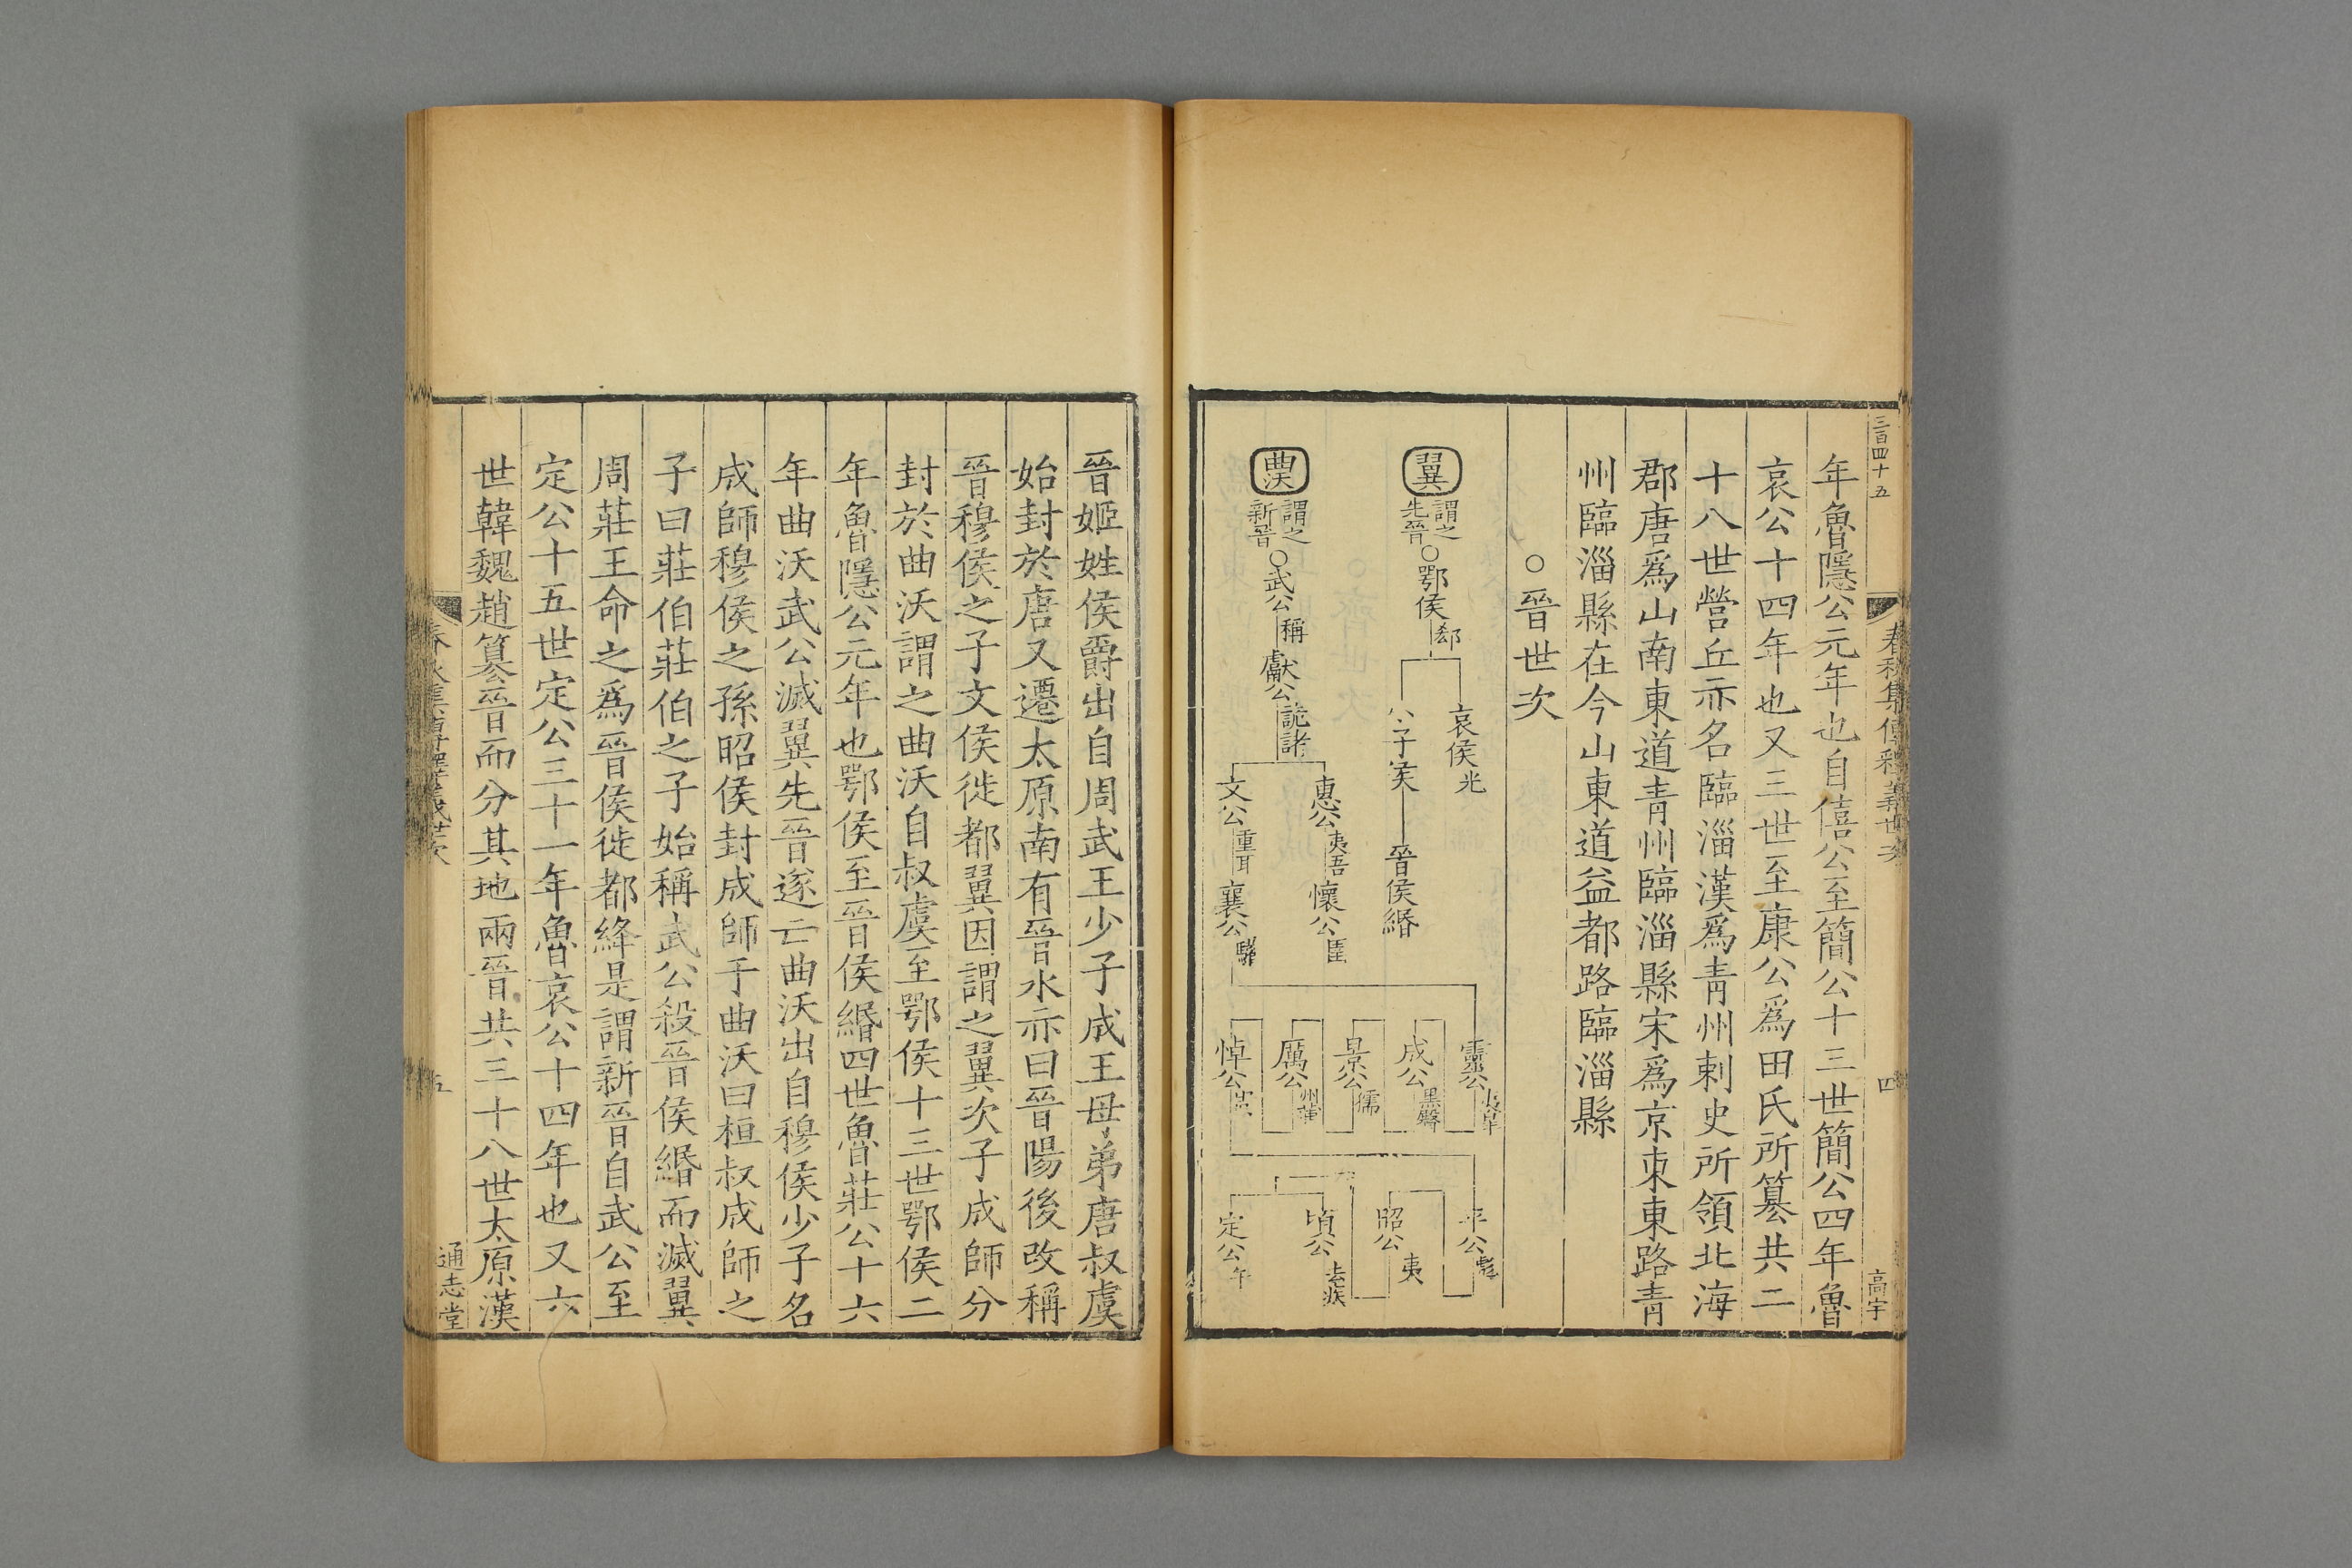 三百四十五
春秋集傳釋義世次
四
高宇
年魯隱公元年也自僖公至簡公十三世簡公四年魯
哀公十四年也又三世至康公爲田氏所簒共二
十八世營丘亦名臨淄漢爲青州刺史所領北海
郡唐爲山南東道青州臨淄縣宋爲京東東路青
州臨淄縣在今山東道益都路臨淄縣
○晉世次
翼
謂之
先晉
○鄂侯郄
哀侯光
小子侯
晉侯緡
曲沃
謂之
新晉
○武公稱
獻公詭諸
惠公夷吾
懷公圉
文公重耳
襄公驩
靈公夷皐
成公黑臀
景公獳
厲公州蒲
悼公周
平公彪
昭公夷
頃公去疾
定公午
晉姬姓侯爵出自周武王少子成王母弟唐叔虞
始封於唐又遷太原南有晉水亦曰晉陽後改稱
晉穆侯之子文侯徙都翼因謂之翼次子成師分
封於曲沃謂之曲沃自叔虞至鄂侯十三世鄂侯二
年魯隱公元年也鄂侯至晉侯緡四世魯莊公十六
年曲沃武公滅翼先晉遂亡曲沃出自穆侯少子名
成師穆侯之孫昭侯封成師于曲沃曰桓叔成師之
子曰莊伯莊伯之子始稱武公殺晉侯緡而滅翼
周莊王命之爲晉侯徙都絳是謂新晉自武公至
定公十五世定公三十一年魯哀公十四年也又六
世韓魏趙簒晉而分其地兩晉共三十八世太原漢
五
通志堂